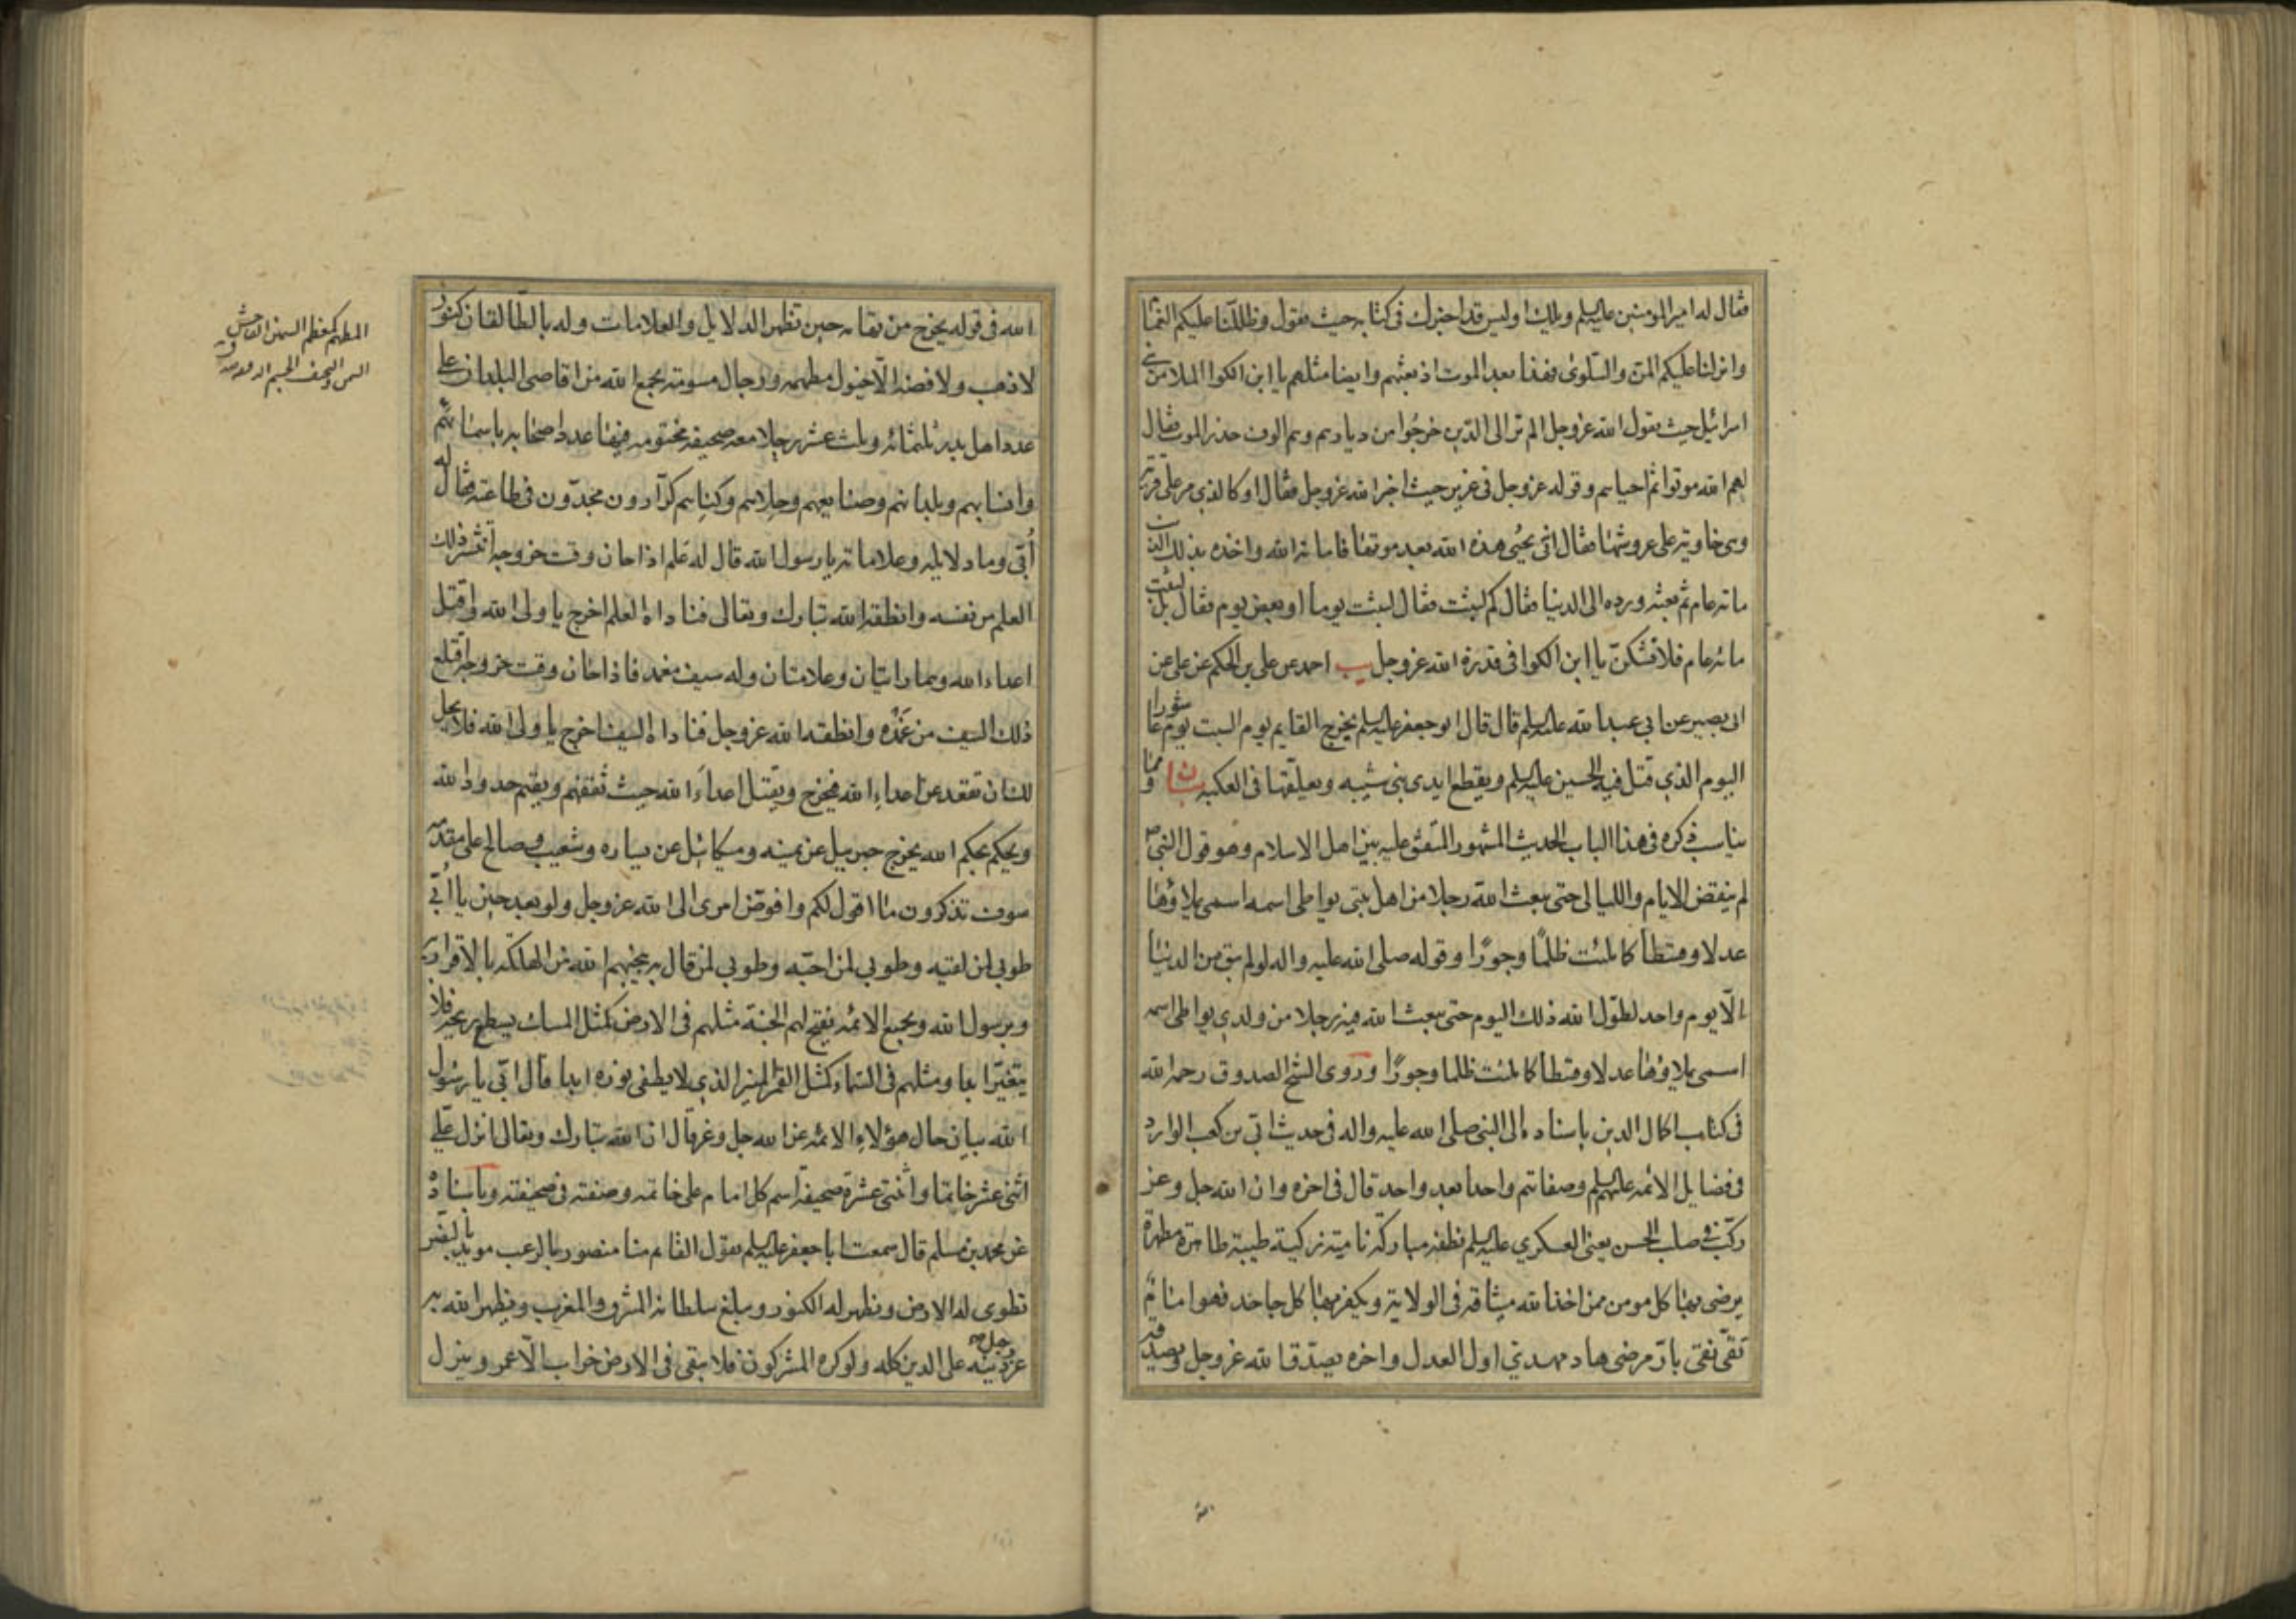 فقال له امير المومنين عليه السلم ويلك اوليس قد اخبرك فى كتابه حيث يقول وظللنا عليكم الغمام
وانزلنا عليكم المن والسلوى فهذا بعد الموت اذ بعثهم وايضا مثلهم يا ابن الكوا الملا من بنى
اسرائيل حيث يقول الله عز وجل الم تر الى الذين خرجوا من ديارهم وهم الوف حذر الموت فقال
لهم الله موتوا ثم احياهم وقوله عز وجل فى عزير حيث اخبر الله عز وجل فقال او كالذي مر على قرية
وهى خاوية على عروشها فقال انى يحيى هذه الله بعد موتها فاماته الله واخذه بذلك الذنب
مائة عام ثم بعثه ورده الى الدنيا فقال كم لبثت فقال لبثت يوما او بعض يوم فقال بل لبثت
مائة عام فلا تشكن يا ابن الكوا فى قدرة الله عز وجل يب احمد عن على بن الحكم عن على عن
ابى بصير عن ابي عبد الله عليه السلم قال قال ابو جعفر عليه السلم يخرج القايم يوم السبت يوم عاشورا
اليوم الذي قتل فيه الحسين عليه السلم ويقطع ايدى بنى شيبه ويعلقها فى الكعبه بيان ومما
يناسب ذكره فى هذا الباب الحديث المشهور المتفق عليه بين اهل الاسلام وهو قول النبى ص
لم ينقض الايام والليالى حتى يبعث الله رجلا من اهل بيتى يواطى اسمه اسمى يملاؤها
عدلا وقسطا كما ملئت ظلما وجورا وقوله صلى الله عليه واله لو لم يبق من الدنيا
الا يوم واحد لطول الله ذلك اليوم حتى يبعث الله فيه رجلا من ولدي يواطى اسمه
اسمى يملاؤها عدلا وقسطا كما ملئت ظلما وجورا وروى الشيخ الصدوق رحمه الله
فى كتاب اكمال الدين باسناده الى النبى صلى الله عليه واله فى حديث ابى بن كعب الوارد
فى فضايل الائمه عليهم السلم وصفاتهم واحدا بعد واحد قال فى اخره وان الله جل وعز
ركب فى صلب الحسن يعنى العسكري عليه السلم نطفة مباركة نامية زكية طيبة طاهرة مطهرة
يرضى بها كل مومن ممن اخذ الله ميثاقه فى الولاية ويكفر بها كل جاحد فهو امام
تقى نقى بار مرضى هاد مهدي اول العدل واخره يصدق الله عز وجل ويصدقه
الله فى قوله يخرج من تهامه حين تظهر الدلايل والعلامات وله بالطالقان كنوز
لا ذهب ولا فضة الا خيول مطهمه ورجال مسومة يجمع الله من اقاصى البلدان على
عدد اهل بدر ثلثمائه وثلث عشر رجلا معه صحيفة مختومه فيها عدد اصحابه باسمائهم
وانسابهم وبلدانهم وصنايعهم وحلاهم وكناهم كرارون مجدون فى طاعته فقال له
أبى وما دلايله وعلاماته يا رسول الله قال له علم اذا حان وقت خروجه انتشر ذلك
العلم من نفسه وانطقه الله تبارك وتعالى فناداه العلم اخرج يا ولى الله واقتل
اعداء الله وهما رايتان وعلامتان وله سيف مغمد فاذا حان وقت خروجه اقتلع
ذلك السيف من غمده وانطقه الله عز وجل فناداه السيف اخرج يا ولى الله فلا يحل
لك ان تقعد عن اعداء الله فيخرج ويقتل اعداء الله حيث ثقفهم ويقيم حدود الله
ويحكم بحكم الله يخرج جبرييل عن يمينه وميكائيل عن يساره وشعيب وصالح على مقدمه
سوف تذكرون ما اقول لكم وافوض امرى الى الله عز وجل ولو بعد حين يا أبى
طوبى لمن لقيه وطوبى لمن احبه وطوبى لمن قال به ينجيهم الله من الهلكة بالاقرار به
وبرسول الله وبجميع الائمه يفتح لهم الجنة مثلهم فى الارض كمثل المسك يسطع ريحه فلا
يتغير ابدا ومثلهم فى السماء كمثل القمر المنير الذي لا يطفى نوره ابدا قال ابى يا رسول
الله بيان حال هؤلاء الائمه عن الله جل وعز قال ان الله تبارك وتعالى انزل على
اثنى عشر خاتما واثنتى عشرة صحيفة اسم كل امام على خاتمه وصفته فى صحيفته وباسناده
عن محمد بن مسلم قال سمعت ابا جعفر عليه السلم يقول القائم منا منصور بالرعب مويد بالنصر
تطوى له الارض وتظهر له الكنوز ويبلغ سلطانه المشرق والمغرب ويظهر الله به
عز وجل دينه على الدين كله ولو كره المشركون فلا يبقى فى الارض خراب الا عمر وينزل
المطهم كمعظم السمين الفاحش
السمن والنحيف الجسم
الله